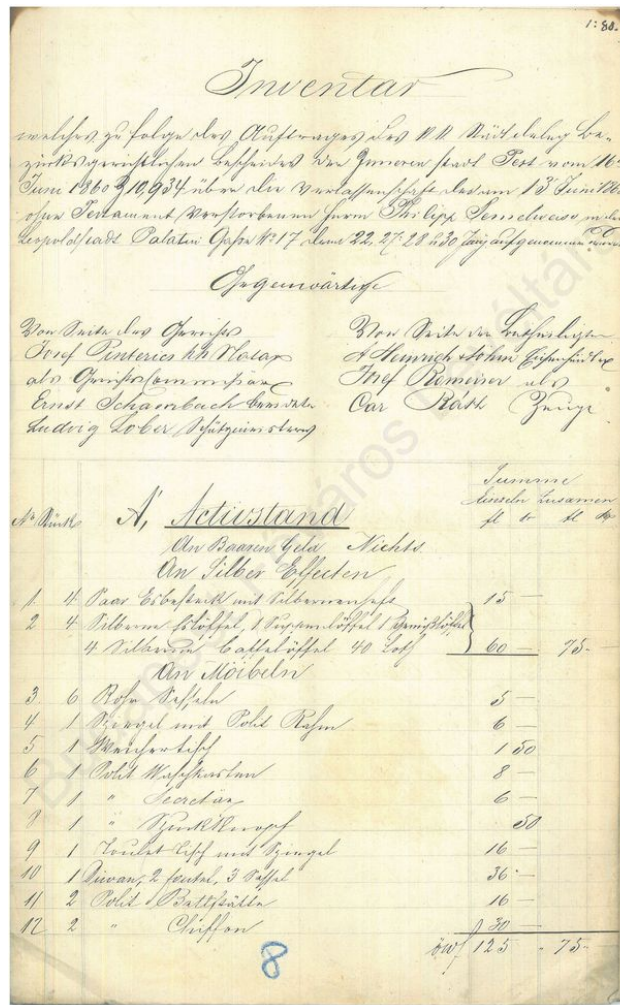 1: 80.
Inventar
welches zu folge des Auftrages des KK Städt deleg Be-
zirksgerichtlichen Bescheides der Inneren Stadt Pest vom 16
Juni 1860 Z 10,934 über die Verlassenschaft des am 13 Juni 1860
ohne Testament Verstorbenen Herrn Philipp in der
Leopoldstadt Palatin Gasse No 17 dem 22, 27, 28 u 30 Juny aufgenommen wurde
Gegenwärtige
Von Seite des Gerichts
Josef Pinterics KK Notar
als Gerichtscommissär
Ernst Schambach beeidete
Ludvig Lober Schätzmeister
Von Seite der Betheiligten
Heinrich Eisenhändler
Josef als
Car Ráth Zeuge
Summe
No Stück A, Activstand Einzeln Zusamen
fl kr fl kr
An Baaren Geld Nichts
An Silber Effecten
1 4 Paar Esbesteck mit Silbernenheft 15 —
2 4 Silberne Eslöffel, 1 Suppenlöffel 1
4 Silberne Caffelöffel 40 Loth 60 — 75 -
An Möibeln
3. 6 Rohr Sesseln 5 —
4 1 Spiegel mit Polit Rahm 6 —
5 1 Weichertisch 1 50
6 1 Polit Waschkasten 8 —
7 1 " Secretär 6 —
8 1 " 50
9 1 Toulet Tisch mit Spiegel 16 —
10 1 Divan, 2 3 Sessel 36 —
11 2 Polit Bettstätte 16 —
12 2 " Chiffon 30 —
öwf 125 - 75 -
8